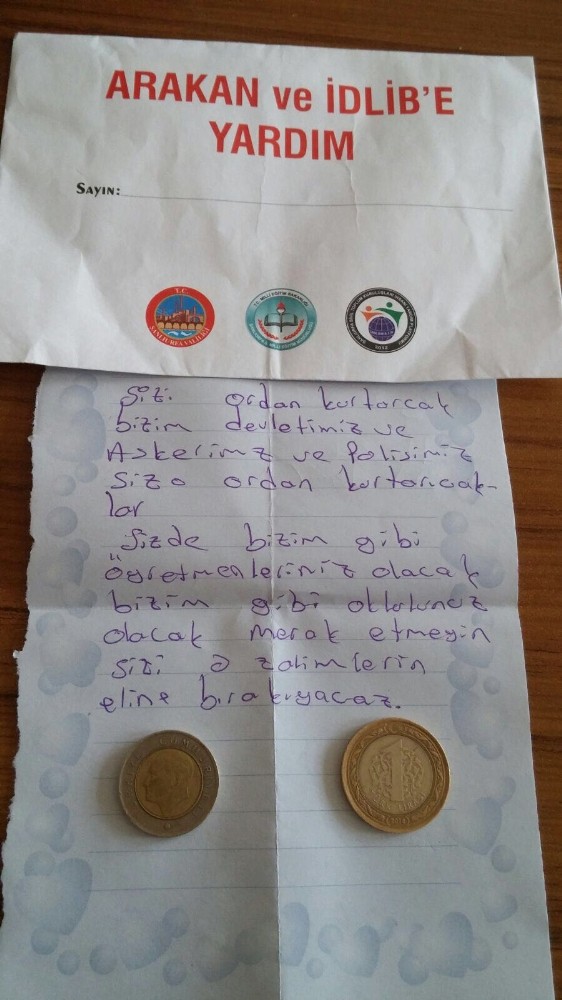 ARAKAN ve İDLİB'E
YARDIM
SAYIN:
T.C.
ŞANLIURFA VALİLİĞİ
T.C. MİLLİ EĞİTİM BAKANLIĞI
Sizi ordan kurtarcak
bizim devletimiz ve
Askerimz ve Polisimiz
Sizo ordan kurtarıcak-
lar
Sizde bizim gibi
öğretmenleriniz olacak
bizim gibi okulunuz
olacak merak etmeyin
sizi o zalimlerin
eline bırakmıyacaz.
1